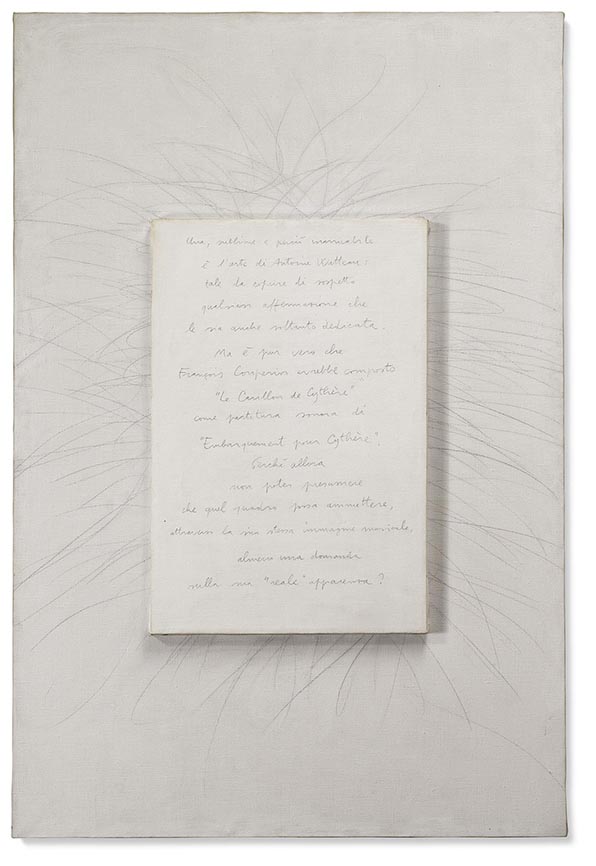 Una, sublime e perciò inarrivabile
è l'arte di Antoine Watteau:
tale da coprire di sospetto
qualsiasi affermazione che
le sia anche soltanto dedicata.
Ma è pur vero che
François Couperin avrebbe composto
"Le Carillon de Cythère"
come partitura sonora di
"Embarquement pour Cythère".
Perché allora
non poter presumere
che quel quadro possa ammettere,
attraverso la sua stessa immagine musicale,
almeno una domanda
sulla sua "reale" apparenza?